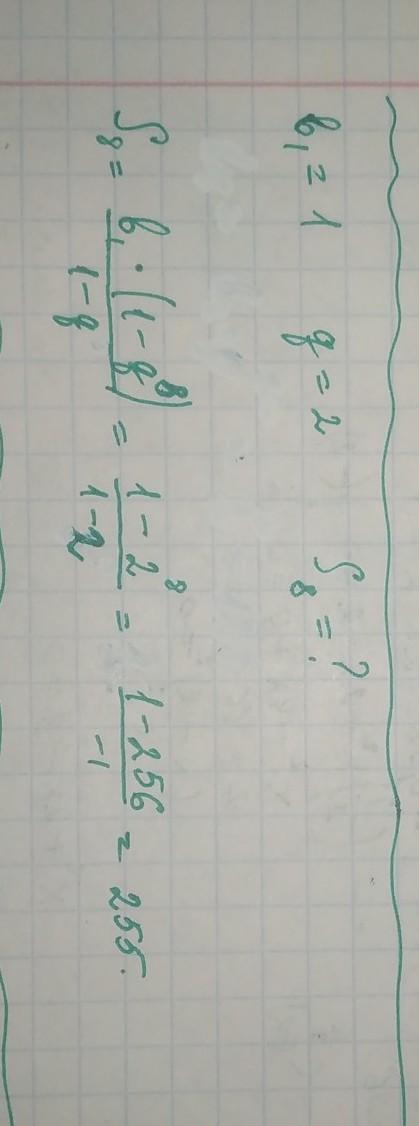 b₁ = 1 q = 2 S₈ = ?
S₈ = b₁ · (1 - q⁸) / 1 - q = 1 - 2⁸ / 1 - 2 = 1 - 256 / -1 = 255.